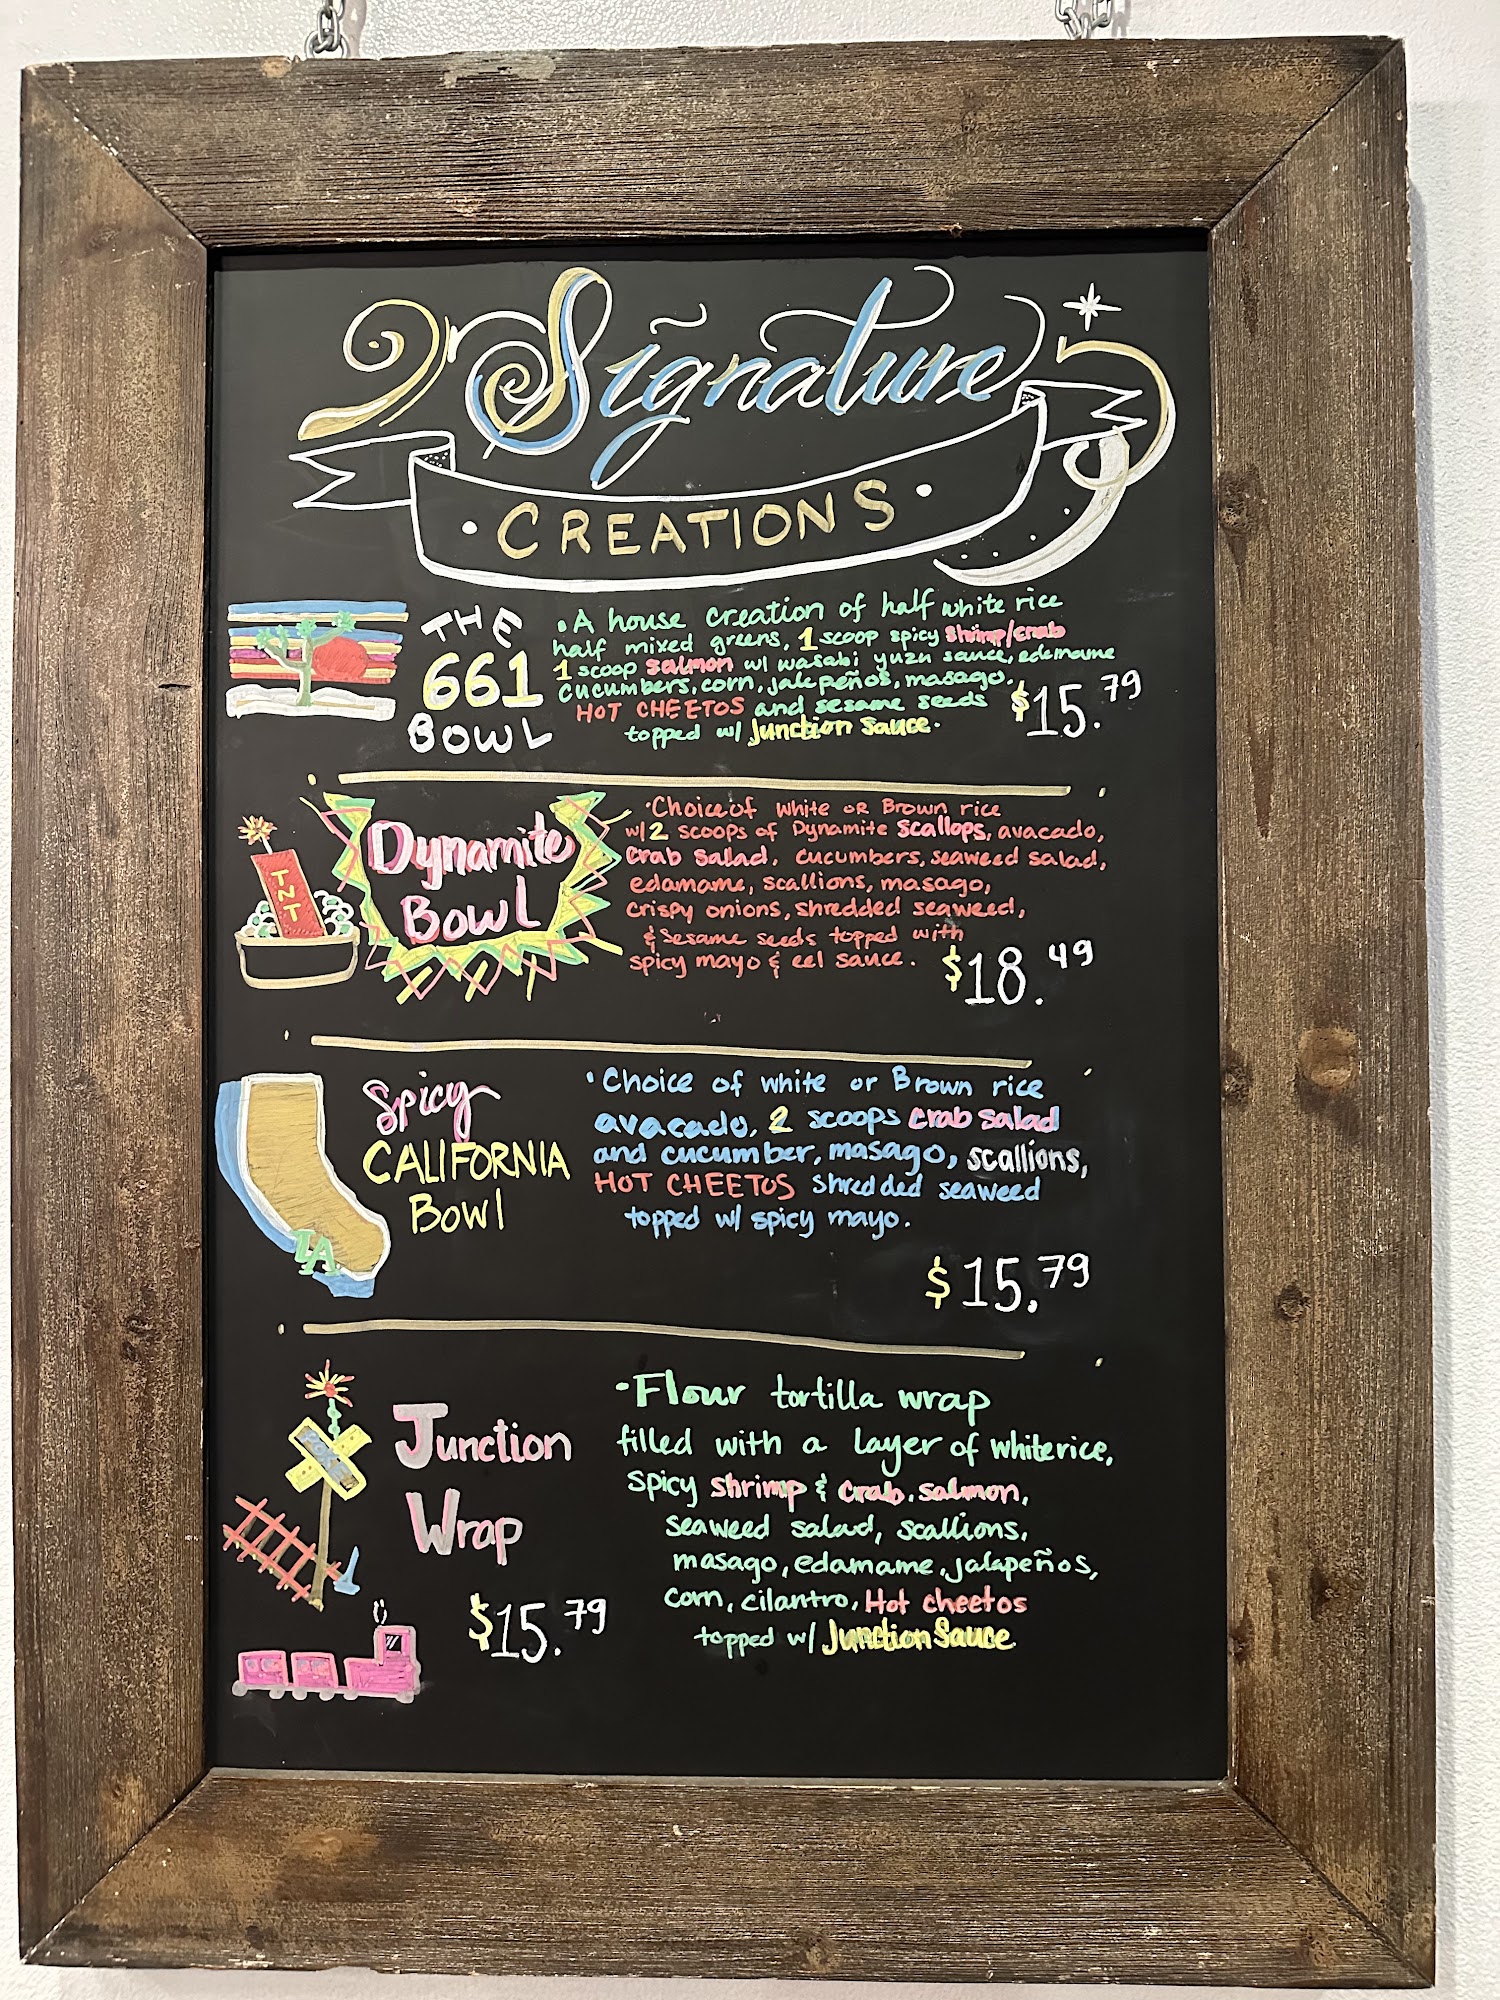 Signature
• CREATIONS •
THE
661
BOWL
• A house creation of half white rice
half mixed greens, 1 scoop spicy shrimp/crab
1 scoop salmon w/ wasabi yuzu sauce, edamame
cucumbers, corn, jalepeños, masago,
HOT CHEETOS and sesame seeds
topped w/ Junction Sauce.
$15.79
TNT
Dynamite
Bowl
• Choice of white or Brown rice
w/ 2 scoops of Dynamite scallops, avacado,
crab salad, cucumbers, seaweed salad,
edamame, scallions, masago,
crispy onions, shredded seaweed,
& sesame seeds topped with
spicy mayo & eel sauce.
$18.49
LA
Spicy
CALIFORNIA
Bowl
• Choice of white or Brown rice
avacado, 2 scoops crab salad
and cucumber, masago, scallions,
HOT CHEETOS shredded seaweed
topped w/ spicy mayo.
$15.79
Junction
Wrap
$15.79
• Flour tortilla wrap
filled with a layer of white rice,
spicy shrimp & crab, salmon,
seaweed salad, scallions,
masago, edamame, jalapeños,
corn, cilantro, Hot cheetos
topped w/ Junction Sauce